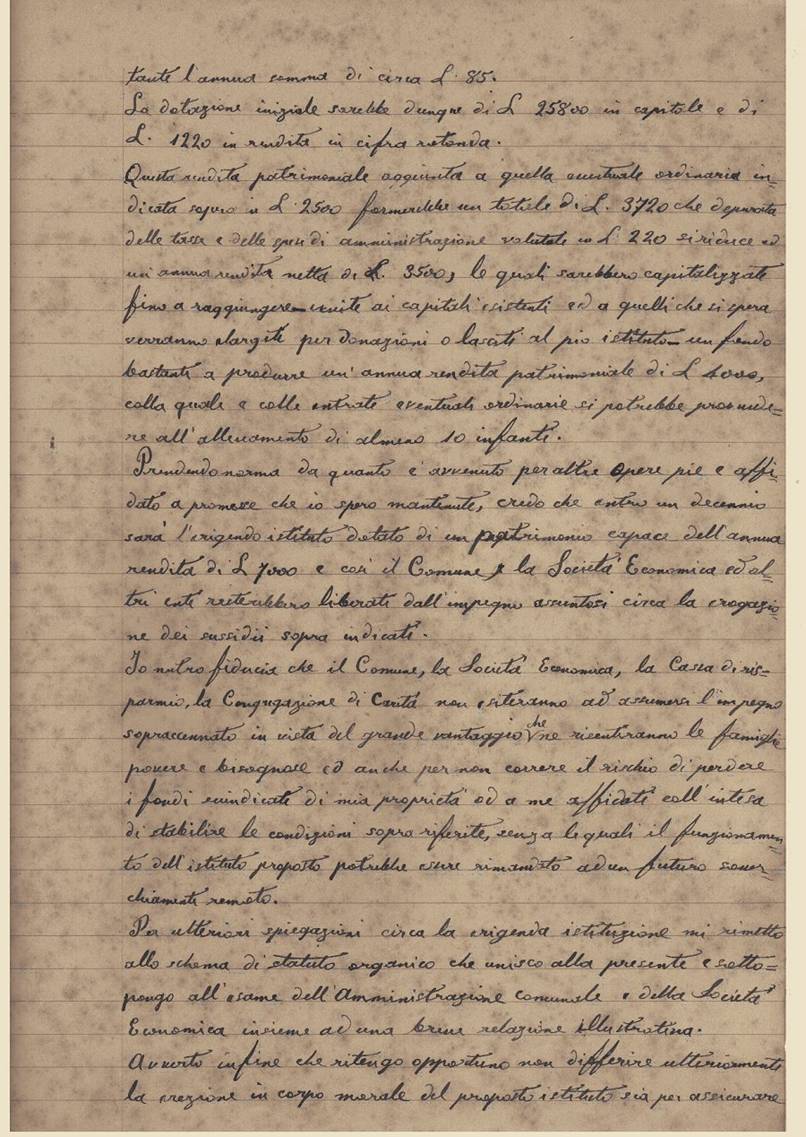 tante l'annua somma di circa L. 85.
La dotazione iniziale sarebbe dunque di L 25800 in capitale e di
L. 1220 in rendita in cifra rotonda.
Questa rendita patrimoniale aggiunta a quella eventuale ordinaria in=
dicata sopra in L. 2500 formerebbe un totale di L. 3720 che depurata
delle tasse e delle spese di amministrazione valutate in L 220 si riduce ad
un'annua rendita netta di L. 3500, le quali sarebbero capitalizzate
fino a raggiungere - unite ai capitali esistenti ed a quelli che si spera
verranno elargiti per donazioni o lasciti al pio istituto - un fondo
bastante a produrre un'annua rendita patrimoniale di L 4000,
colla quale e colle entrate eventuali ordinarie si potrebbe provvede=
re all'allevamento di almeno 10 infanti.
Prendendo norma da quanto è avvenuto per altre Opere pie e affi=
dato a promesse che io spero mantenute, credo che entro un decennio
sarà l'erigendo istituto dotato di un patrimonio capace dell'annua
rendita di L 7000 e così il Comune, e la Società Economica ed al=
tri enti resterebbero liberati dall'impegno assuntosi circa la erogazio=
ne dei sussidii sopra indicati.
Io nutro fiducia che il Comune, la Società Economica, la Cassa di ris=
parmio, la Congregazione di Carità non esiteranno ad assumersi l'impegno
sopraccennato in vista del grande vantaggio che ne risentiranno le famiglie
povere e bisognose ed anche per non correre il rischio di perdere
i fondi suindicati di mia proprietà od a me affidati coll'intesa
di stabilire le condizioni sopra riferite, senza le quali il funzionamen=
to dell'istituto proposto potrebbe essere rimandato ad un futuro sover=
chiamente remoto.
Per ulteriori spiegazioni circa la erigenda istituzione mi rimetto
allo schema di statuto organico che unisco alla presente e sotto=
pongo all'esame dell'Amministrazione comunale e della Società
Economica insieme ad una breve relazione illustrativa.
Avverto infine che ritengo opportuno non differire ulteriormente
la erezione in corpo morale del proposto istituto sia per assicurare